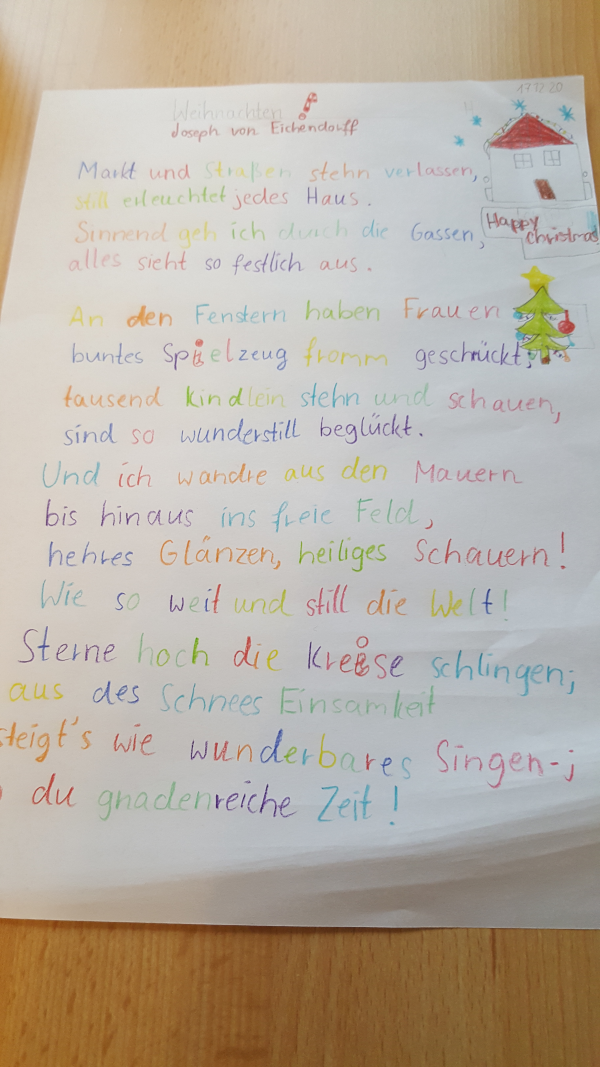 17.12.20
Weihnachten
Joseph von Eichendorff
Markt und Straßen stehn verlassen,
still erleuchtet jedes Haus.
Sinnend geh ich durch die Gassen,
alles sieht so festlich aus.
Happy
Christmas
An den Fenstern haben Frauen
buntes Spielzeug fromm geschmückt,
tausend Kindlein stehn und schauen,
sind so wunderstill beglückt.
Und ich wandre aus den Mauern
bis hinaus ins freie Feld,
hehres Glänzen, heiliges Schauern!
Wie so weit und still die Welt!
Sterne hoch die Kreise schlingen;
aus des Schnees Einsamkeit
steigt's wie wunderbares Singen-;
du gnadenreiche Zeit!